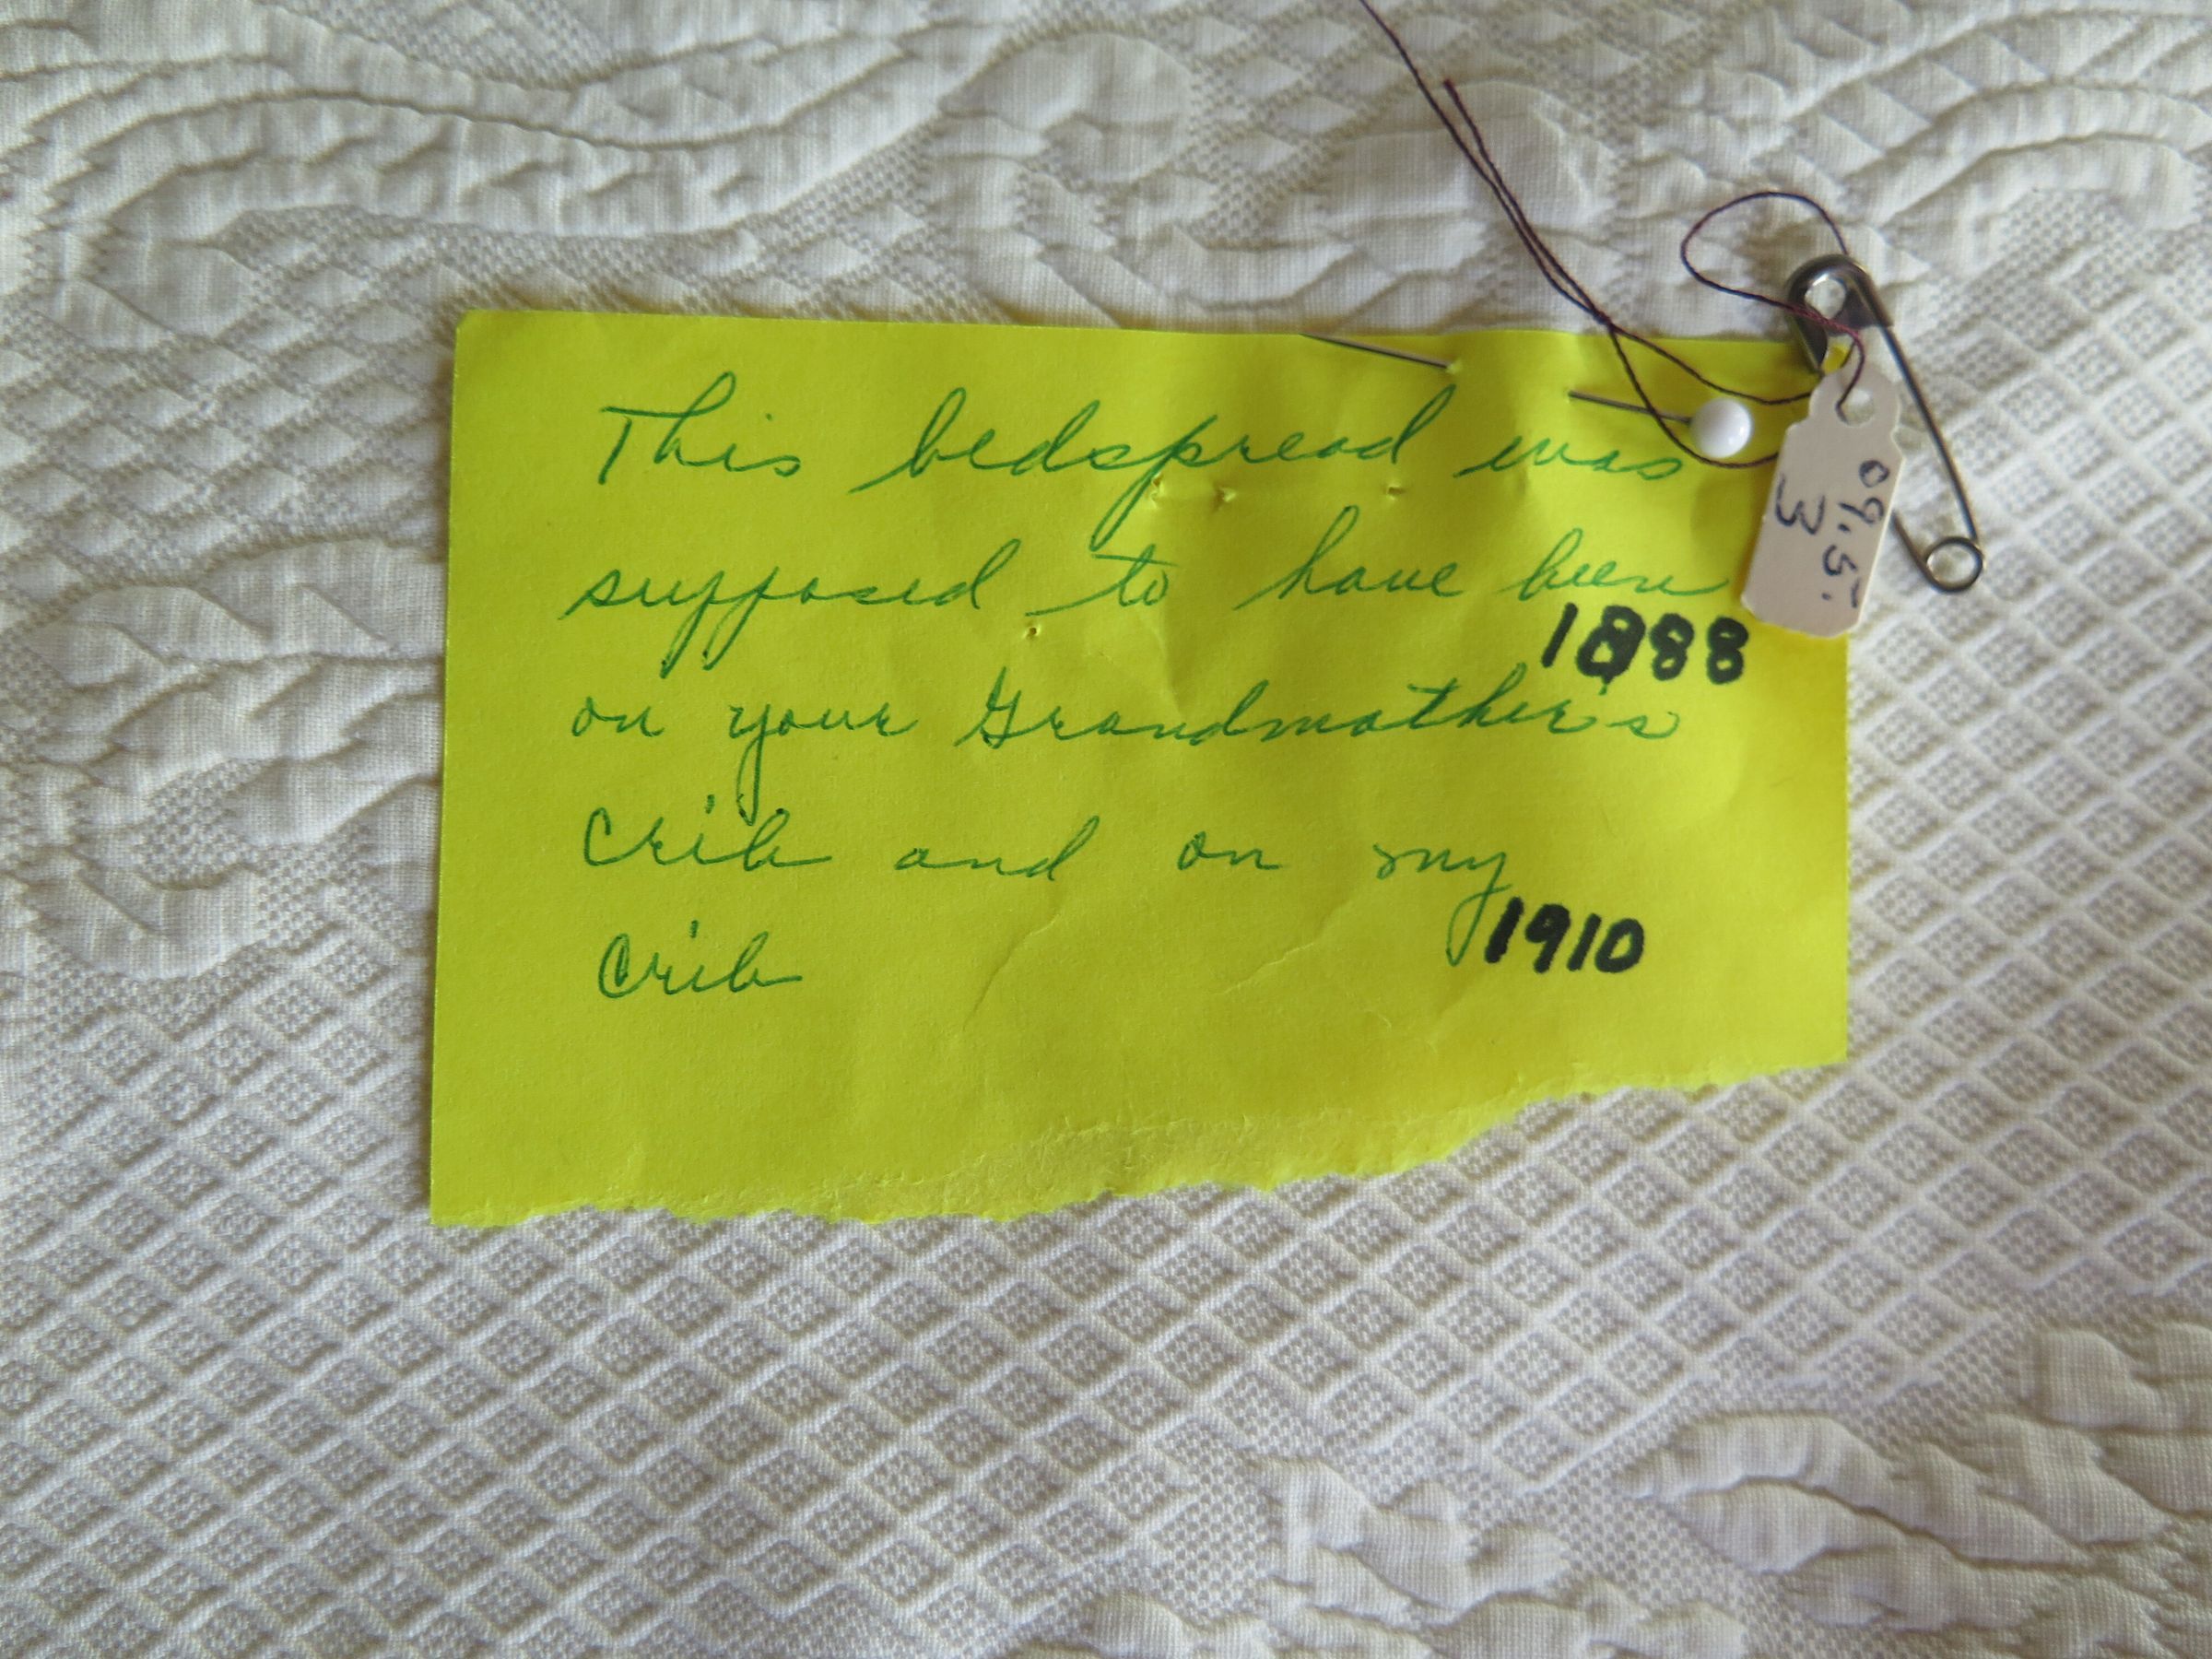 This bedspread was
supposed to have been
1888
on your Grandmother's
Crib and on my
1910
Crib
09.5.
3